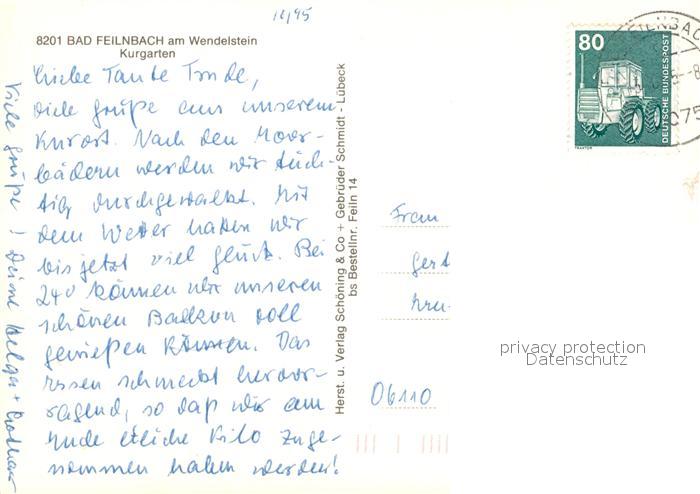 12/95
8201 BAD FEILNBACH am Wendelstein
Kurgarten
Liebe Tante Trude,
viele grüße aus unserem
Kurort. Nach den Moor-
bädern werden wir tüch-
tig durchgewalkt. Mit
dem Wetter hatten wir
bis jetzt viel glück. Bei
24° können wir unseren
schönen Balkon voll
genießen können. Das
Essen schmeckt hervor-
ragend, so daß wir am
Ende etliche Kilo zuge-
nommen haben werden!
Viele grüße! Deine Helga + Lothar
Herst. u. Verlag Schöning & Co + Gebrüder Schmidt - Lübeck
bs Bestellnr. Feiln 14
80
DEUTSCHE BUNDESPOST
TRAKTOR
075
Frau
Gert
06110
privacy protection
Datenschutz